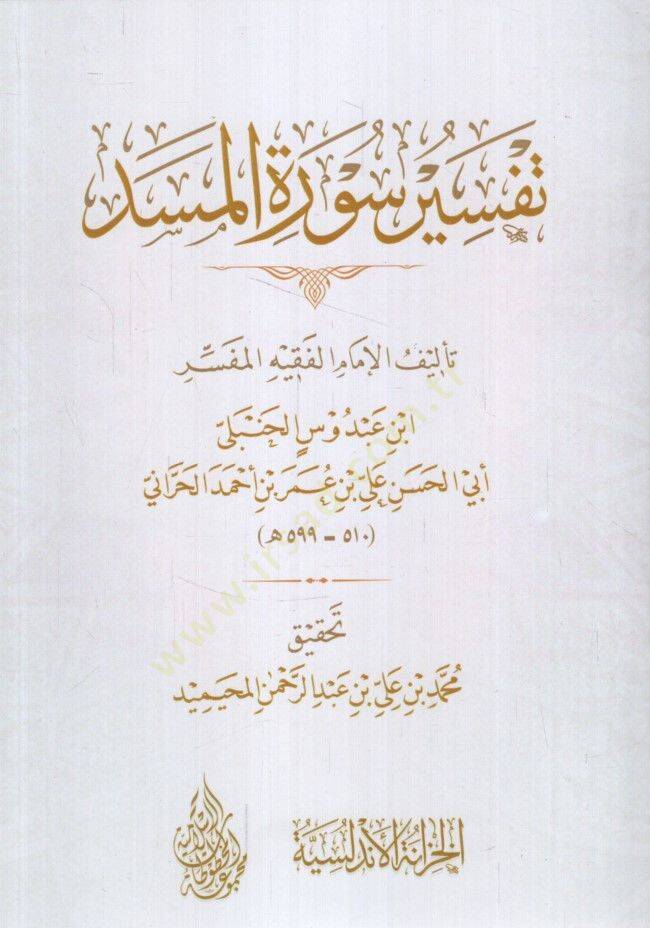 تَفْسِيرُ سُورَةِ المَسَدِ
تأليفُ الإمامِ الفَقِيهِ المفَسِّرِ
ابْنِ عَبْدُوْسٍ الحَنْبَلِيّ
أبي الحَسَنِ عَلِيِّ بْنِ عُمَرَ بْنِ أحْمَدَ الحَرَّانِيّ
(٥١٠ - ٥٩٩ هـ)
تحْقِيْق
مُحَمَّدِ بْنِ عَلِيِّ بْنِ عَبْدِ الرَّحْمٰنِ المحَيمِيد
الخِزَانَةُ الأَنْدَلُسِيَّةُ
www.irsad.com.tr